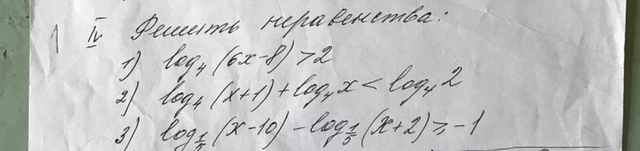 1 IV Решить неравенства:
1) log₄ (6x-8) > 2
2) log₄ (x+1) + log₄ x < log₄ 2
3) log_{1/5} (x-10) - log_{1/5} (x+2) ≥ -1